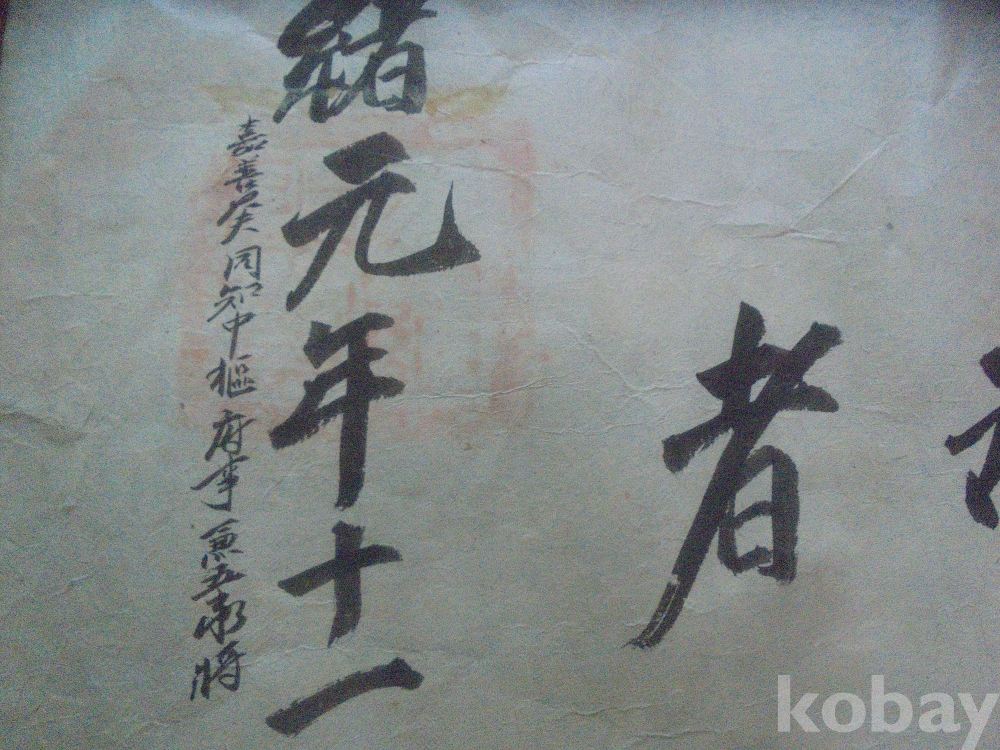 者
緖元年十一
嘉善大夫同知中樞府事兼五衛將
kobay